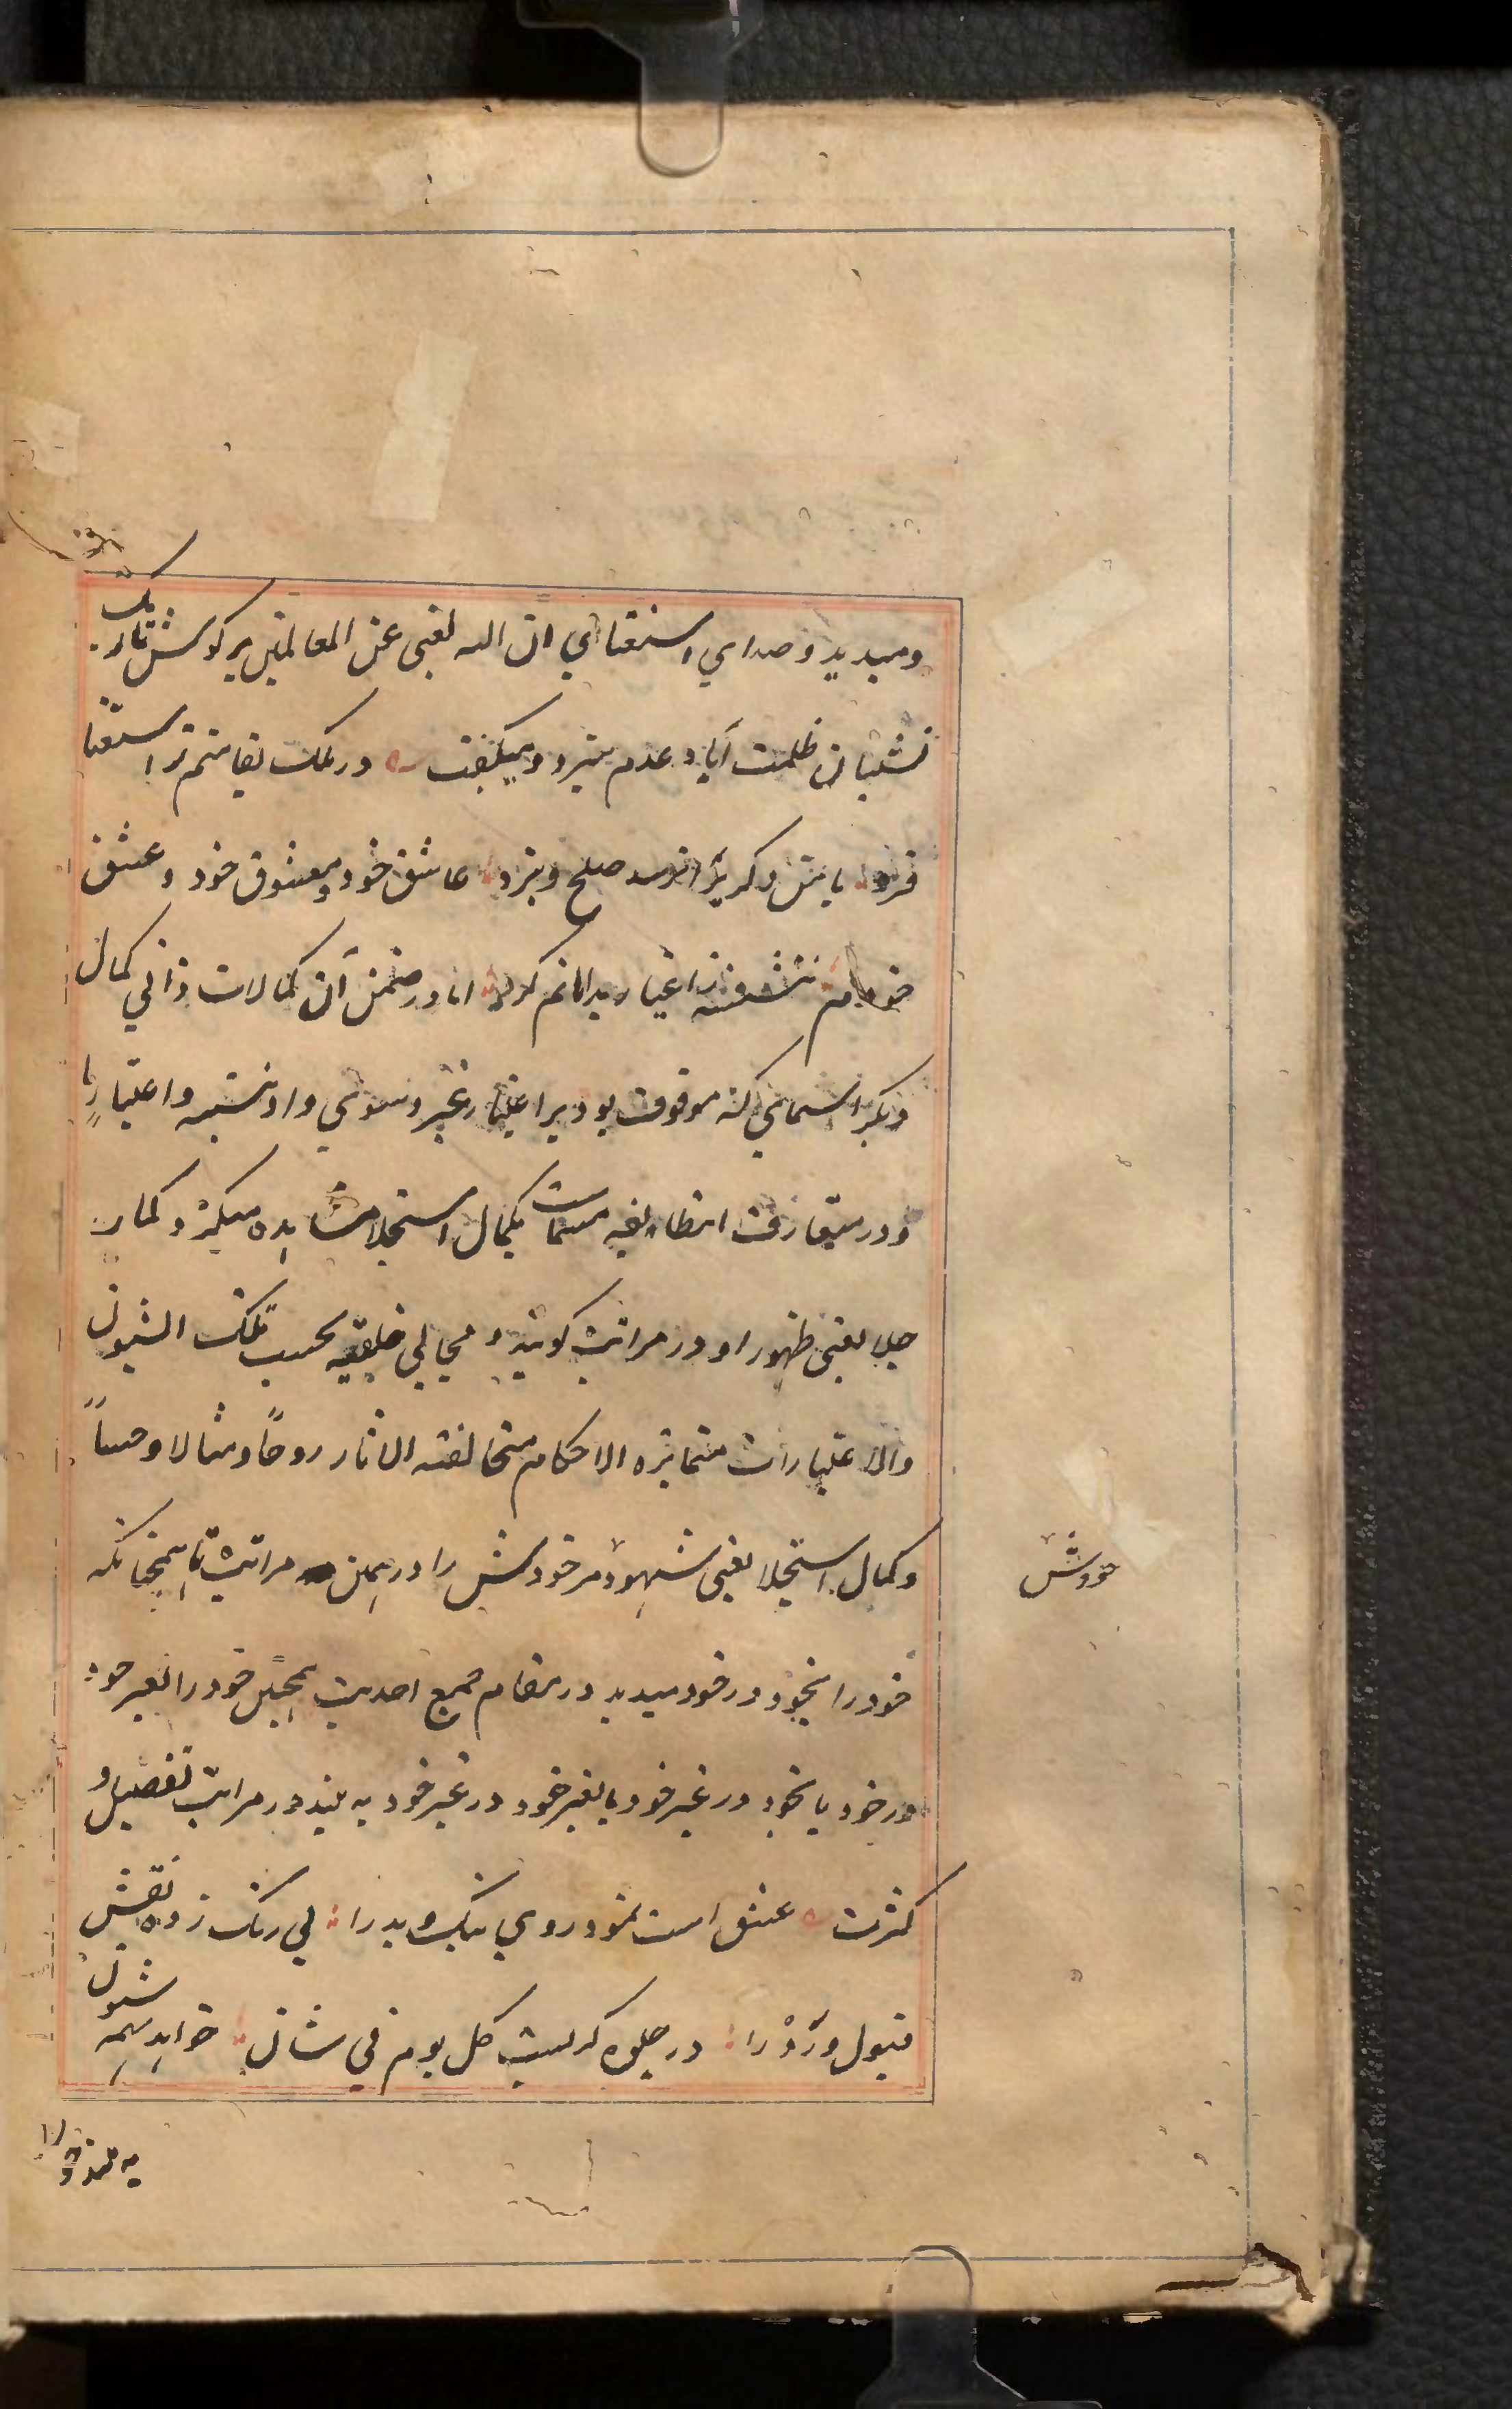 ومیدید و صدای استغنای ان الله لغنی عن العالمین بر کوش تاریک
نشینان ظلمت آباد عدم میزد و میکفت در ملک بقا منم تر استغنا
فرد با من دکریرا نرسد صلح و نبرد عاشق خود و معشوق خود و عشق
خودم ننشسته ز اغیار بدامانم کرد اما در ضمن آن کمالات ذاتی کمال
دیکر اسمائی که موقوفت بود بر اعتبار غیر و سوی و لو نسبه و اعتبارا
و در متعارف این طایفه مسماست بکمال استجلا مشاهده میکرد و کمال
جلا یعنی ظهور او در مراتب کونیه و مجالی خلقیه بحسب تلک الشیون
والاعتبارات متمایزه الاحکام متخالفته الاثار روحاً و مثالا و حساً
و کمال استجلا یعنی شهود مر خودش را در همین مراتب تا همچنانکه
خودش
خود را بخود در خود میدید در مقام جمع احدیت همچنین خود را بغیر خود
در خود یا بخود در غیر خود یا بغیر خود در غیر خود به بیند در مراتب تفصیل و
کثرت عشق است نمود روی نیک و بد را بی رنک زده نقش
قبول و رد را در جلوه کریست کل یوم فی شان خواهد همه شیون
به بیند